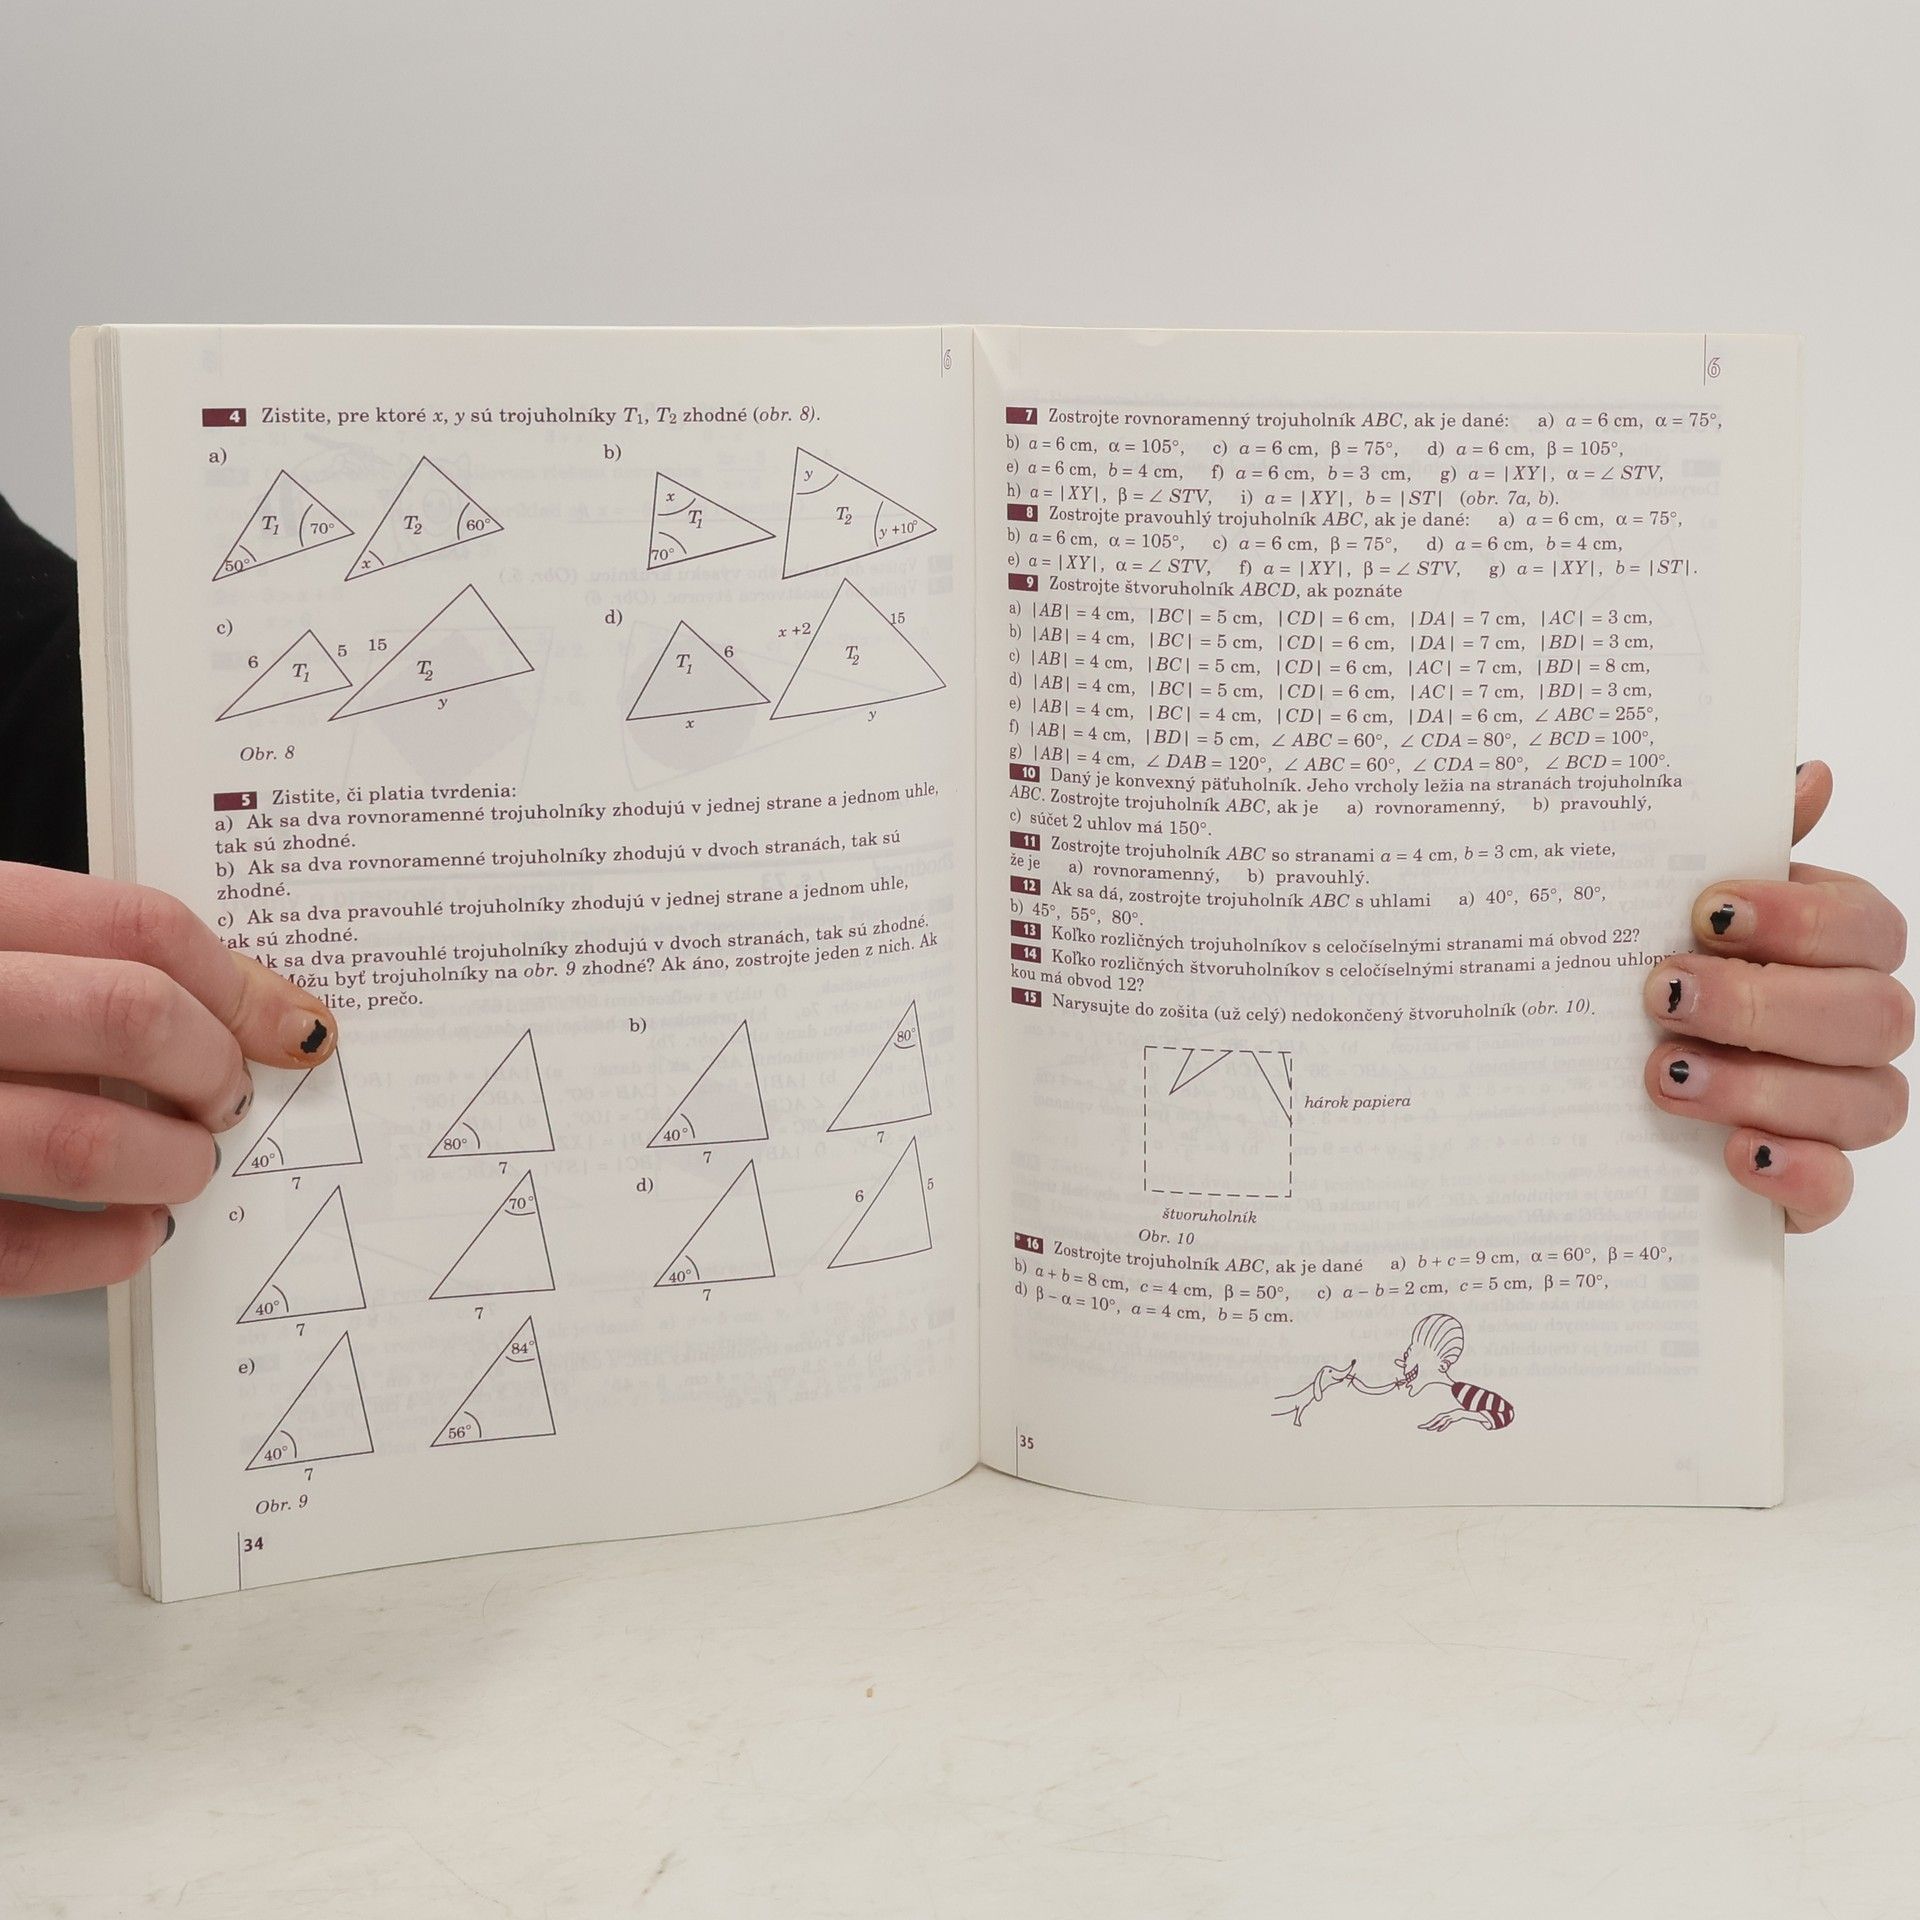 6
4 Zistite, pre ktoré x, y sú trojuholníky T1, T2 zhodné (obr. 8).
a)
b)
T1 70° 50°
T2 60° x
x T1 70°
y T2 y +10°
c)
d)
6 T1 5
15 T2 y
T1 6 x
x +2 T2 15 y
Obr. 8
5 Zistite, či platia tvrdenia:
a) Ak sa dva rovnoramenné trojuholníky zhodujú v jednej strane a jednom uhle,
tak sú zhodné.
b) Ak sa dva rovnoramenné trojuholníky zhodujú v dvoch stranách, tak sú
zhodné.
c) Ak sa dva pravouhlé trojuholníky zhodujú v jednej strane a jednom uhle,
tak sú zhodné.
Ak sa dva pravouhlé trojuholníky zhodujú v dvoch stranách, tak sú zhodné.
Môžu byť trojuholníky na obr. 9 zhodné? Ak áno, zostrojte jeden z nich. Ak
prečo.
40° 7
80° 7
b)
40° 7
80° 7
c)
40° 7
70° 7
d)
40° 7
6 5
e)
40° 7
84° 56°
Obr. 9
34
6
7 Zostrojte rovnoramenný trojuholník ABC, ak je dané: a) a = 6 cm, α = 75°,
b) a = 6 cm, α = 105°, c) a = 6 cm, β = 75°, d) a = 6 cm, β = 105°,
e) a = 6 cm, b = 4 cm, f) a = 6 cm, b = 3 cm, g) a = |XY|, α = ∠ STV,
h) a = |XY|, β = ∠ STV, i) a = |XY|, b = |ST| (obr. 7a, b).
8 Zostrojte pravouhlý trojuholník ABC, ak je dané: a) a = 6 cm, α = 75°,
b) a = 6 cm, α = 105°, c) a = 6 cm, β = 75°, d) a = 6 cm, b = 4 cm,
e) a = |XY|, α = ∠ STV, f) a = |XY|, β = ∠ STV, g) a = |XY|, b = |ST|.
9 Zostrojte štvoruholník ABCD, ak poznáte
a) |AB| = 4 cm, |BC| = 5 cm, |CD| = 6 cm, |DA| = 7 cm, |AC| = 3 cm,
b) |AB| = 4 cm, |BC| = 5 cm, |CD| = 6 cm, |DA| = 7 cm, |BD| = 3 cm,
c) |AB| = 4 cm, |BC| = 5 cm, |CD| = 6 cm, |AC| = 7 cm, |BD| = 8 cm,
d) |AB| = 4 cm, |BC| = 5 cm, |CD| = 6 cm, |AC| = 7 cm, |BD| = 3 cm,
e) |AB| = 4 cm, |BC| = 4 cm, |CD| = 6 cm, |DA| = 6 cm, ∠ ABC = 255°,
f) |AB| = 4 cm, |BD| = 5 cm, ∠ ABC = 60°, ∠ CDA = 80°, ∠ BCD = 100°,
g) |AB| = 4 cm, ∠ DAB = 120°, ∠ ABC = 60°, ∠ CDA = 80°, ∠ BCD = 100°.
10 Daný je konvexný päťuholník. Jeho vrcholy ležia na stranách trojuholníka
ABC. Zostrojte trojuholník ABC, ak je a) rovnoramenný, b) pravouhlý,
c) súčet 2 uhlov má 150°.
11 Zostrojte trojuholník ABC so stranami a = 4 cm, b = 3 cm, ak viete,
že je a) rovnoramenný, b) pravouhlý.
12 Ak sa dá, zostrojte trojuholník ABC s uhlami a) 40°, 65°, 80°,
b) 45°, 55°, 80°.
13 Koľko rozličných trojuholníkov s celočíselnými stranami má obvod 22?
14 Koľko rozličných štvoruholníkov s celočíselnými stranami a jednou
kou má obvod 12?
15 Narysujte do zošita (už celý) nedokončený štvoruholník (obr. 10).
hárok papiera
štvoruholník
Obr. 10
*16 Zostrojte trojuholník ABC, ak je dané a) b + c = 9 cm, α = 60°, β = 40°,
b) a + b = 8 cm, c = 4 cm, β = 50°, c) a − b = 2 cm, c = 5 cm, β = 70°,
d) β − α = 10°, a = 4 cm, b = 5 cm.
35